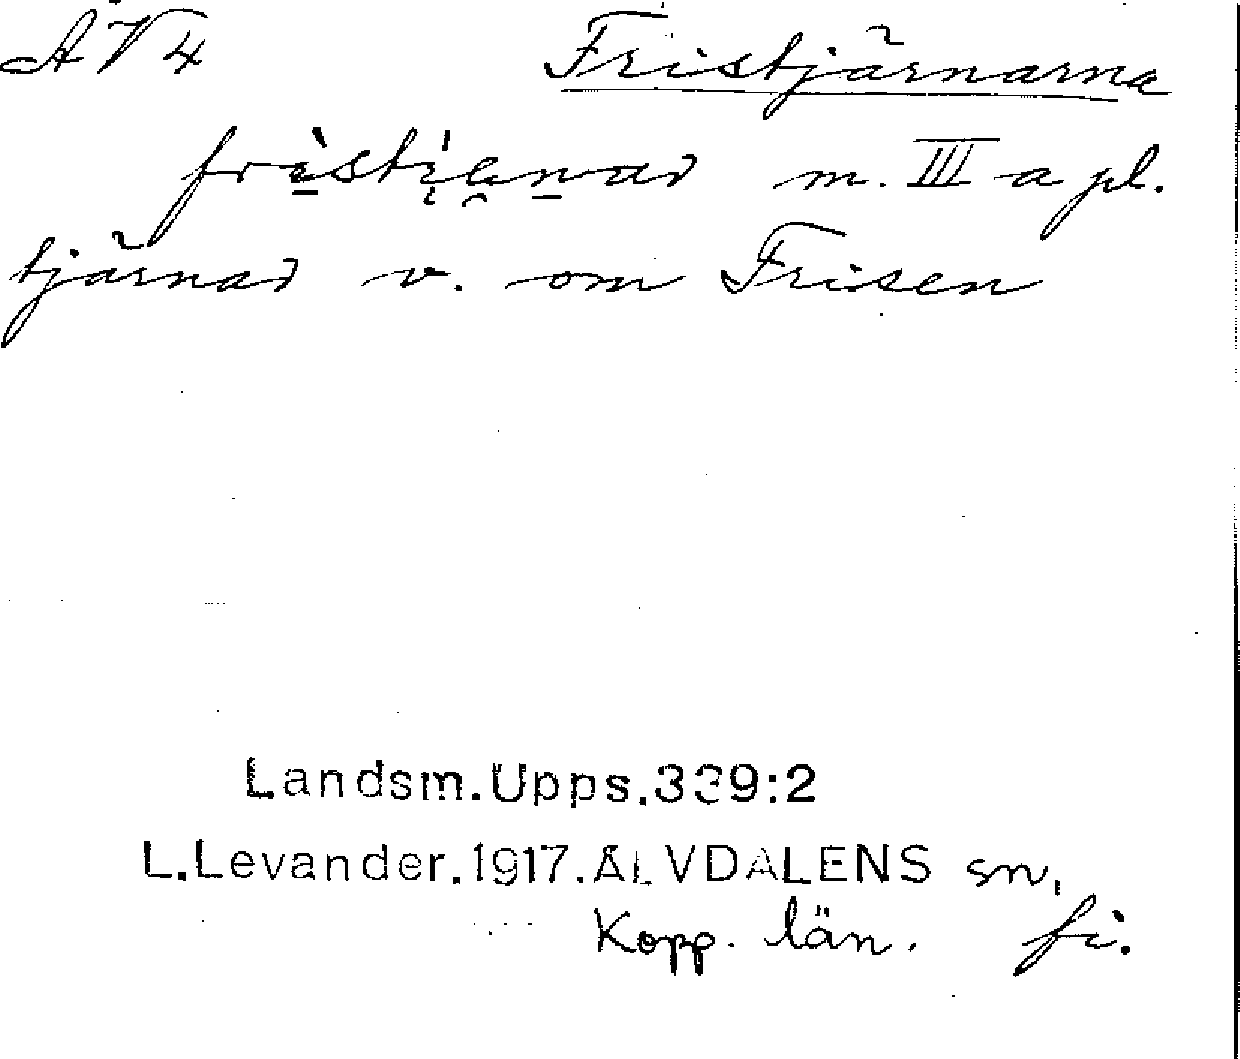 ÄV4 Fristjärnarna
fri̱stjɛnar m. III a pl.
tjärnar v. om Frisen
Landsm.Upps.339:2
L.Levander.1917.ÄLVDALENS sn,
Kopp. län. fi.